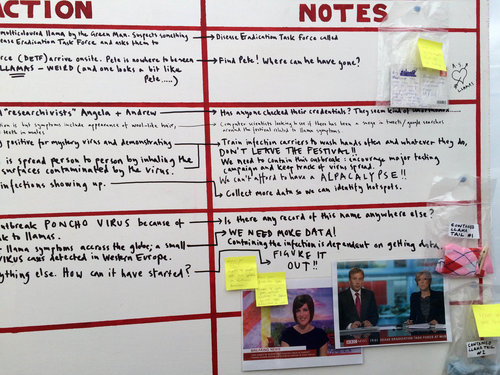 ACTION
NOTES
multicoloured llama by the Green Man. Suspects something
Disease Eradication Task Force called
ease Eradication Task Force and asks them to
orce (DETF) arrive onsite. Pete is nowhere to be seen
Find Pete! Where can he have gone?
LLAMAS - WEIRD (and one looks a bit like
Pete.....)
"researchivists" Angela + Andrew
Has anyone checked their credentials? They seem kind of
computer scientists looking to see if there has been a surge in tweets/google searches
around the festival related to llama symptoms
positive for mystery virus and demonstrating
Train infection carriers to wash hands often and whatever they do,
DON'T LEAVE THE FESTIVAL!!
is spread person to person by inhaling the
surfaces contaminated by the virus.
We need to contain this outbreak: encourage major texting
campaign and keep track of virus spread.
We can't afford to have a ALPACALYPSE!!
infections showing up.
Collect more data so we can identify hotspots.
utbreak PONCHO VIRUS because of
Is there any record of this name anywhere else?
k to llamas.
WE NEED MORE DATA!
llama symptoms accross the globe; a small
Containing the infection is dependent on getting data
VIRUS cases detected in Western Europe.
FIGURE IT
OUT!!
ything else. How can it have started?
CONTAINED
LLAMA
TAIL #1
BREAKING NEWS
BBC NEWS
CONTAINED
LLAMA TAIL
#2